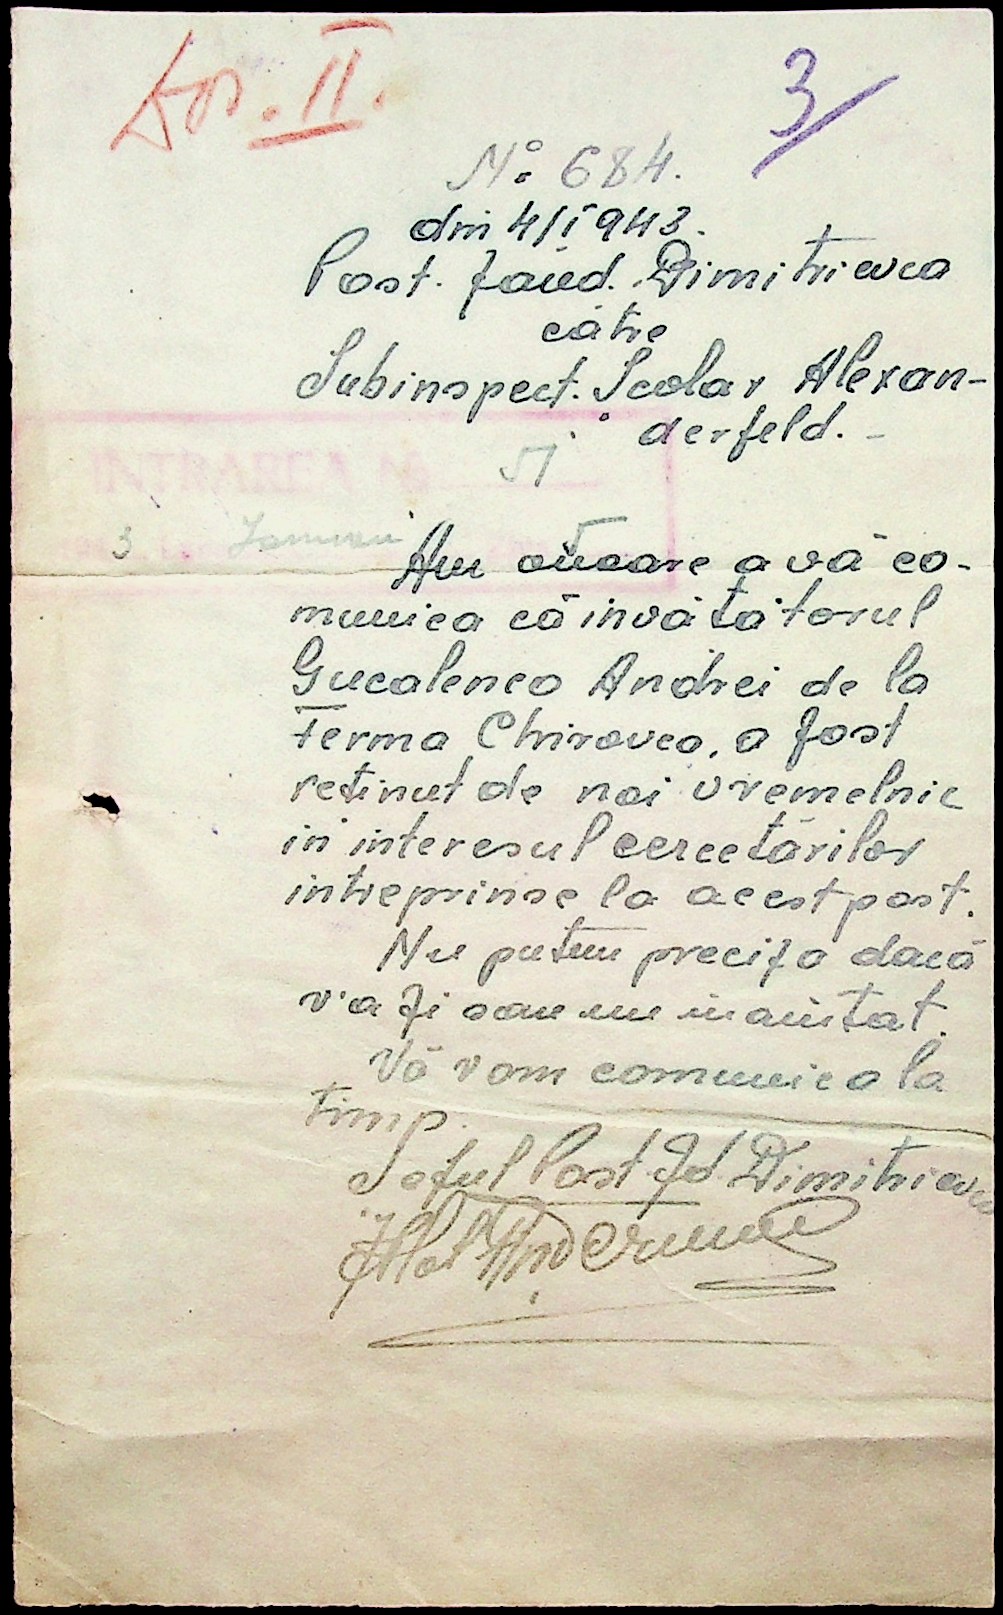 Dos. II.
3/
No 684.
din 4/I 943.
Post. Jand. Dimitrievca
către
Subinspect. Scolar Alexan-
derfeld. -
INTRAREA No
51
3 Ianuari
Am onoare a vă co-
munica că invătătorul
Gucalenco Andrei de la
ferma Chirovca, a fost
reținut de noi vremelnic
in interesul cercetărilor
intreprinse la acest post.
Nu putem preciza dacă
v'a fi sau nu inaintat.
Vă vom comunica la
timp.
Seful Post Jd. Dimitrievca